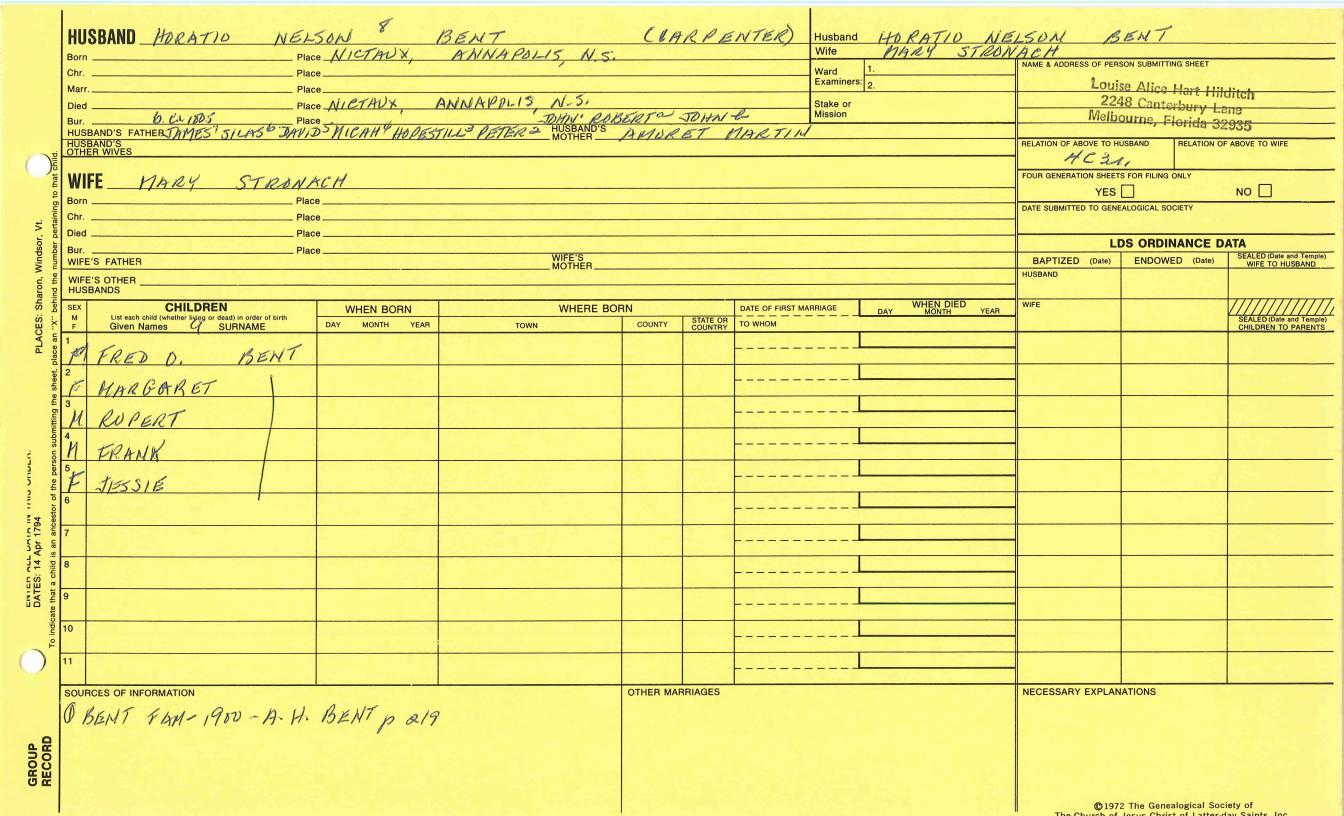 HUSBAND HORATIO NELSON 8 BENT (CARPENTER)
Born Place NICTAUX, ANNAPOLIS, N.S.
Chr. Place
Marr. Place
Died Place NICTAUX, ANNAPOLIS, N.S.
Bur. Place JOHN' ROBERT JOHN
HUSBAND'S FATHER JAMES7 SILAS6 DAVID5 MICAH4 HOPESTILL3 PETER2 HUSBAND'S MOTHER AMORET MARTIN
HUSBAND'S OTHER WIVES
WIFE MARY STRONACH
Born Place
Chr. Place
Died Place
Bur. Place
WIFE'S FATHER WIFE'S MOTHER
WIFE'S OTHER HUSBANDS
Husband HORATIO NELSON BENT
Wife MARY STRONACH
Ward Examiners: 1.
2.
Stake or Mission
NAME & ADDRESS OF PERSON SUBMITTING SHEET
Louise Alice Hart Hilditch
2248 Canterbury Lane
Melbourne, Florida 32935
RELATION OF ABOVE TO HUSBAND RELATION OF ABOVE TO WIFE
4C3r.
FOUR GENERATION SHEETS FOR FILING ONLY
YES NO
DATE SUBMITTED TO GENEALOGICAL SOCIETY
LDS ORDINANCE DATA
BAPTIZED (Date) ENDOWED (Date) SEALED (Date and Temple) WIFE TO HUSBAND
HUSBAND
WIFE
SEALED (Date and Temple) CHILDREN TO PARENTS
SEX M F
CHILDREN
List each child (whether living or dead) in order of birth
Given Names 9 SURNAME
WHEN BORN
DAY MONTH YEAR
WHERE BORN
TOWN COUNTY STATE OR COUNTRY
DATE OF FIRST MARRIAGE
TO WHOM
WHEN DIED
DAY MONTH YEAR
1 M FRED O. BENT
2 F MARGARET
3 M RUPERT
4 M FRANK
5 F JESSIE
6
7
8
9
10
11
SOURCES OF INFORMATION
① BENT FAM - 1900 - A. H. BENT p 219
OTHER MARRIAGES
NECESSARY EXPLANATIONS
©1972 The Genealogical Society of
The Church of Jesus Christ of Latter-day Saints, Inc.
PLACES: Sharon, Windsor, Vt.
ENTER ALL DATA IN THIS ORDER:
DATES: 14 Apr 1794
To indicate that a child is an ancestor of the person submitting the sheet, place an "X" behind the number pertaining to that child.
GROUP RECORD